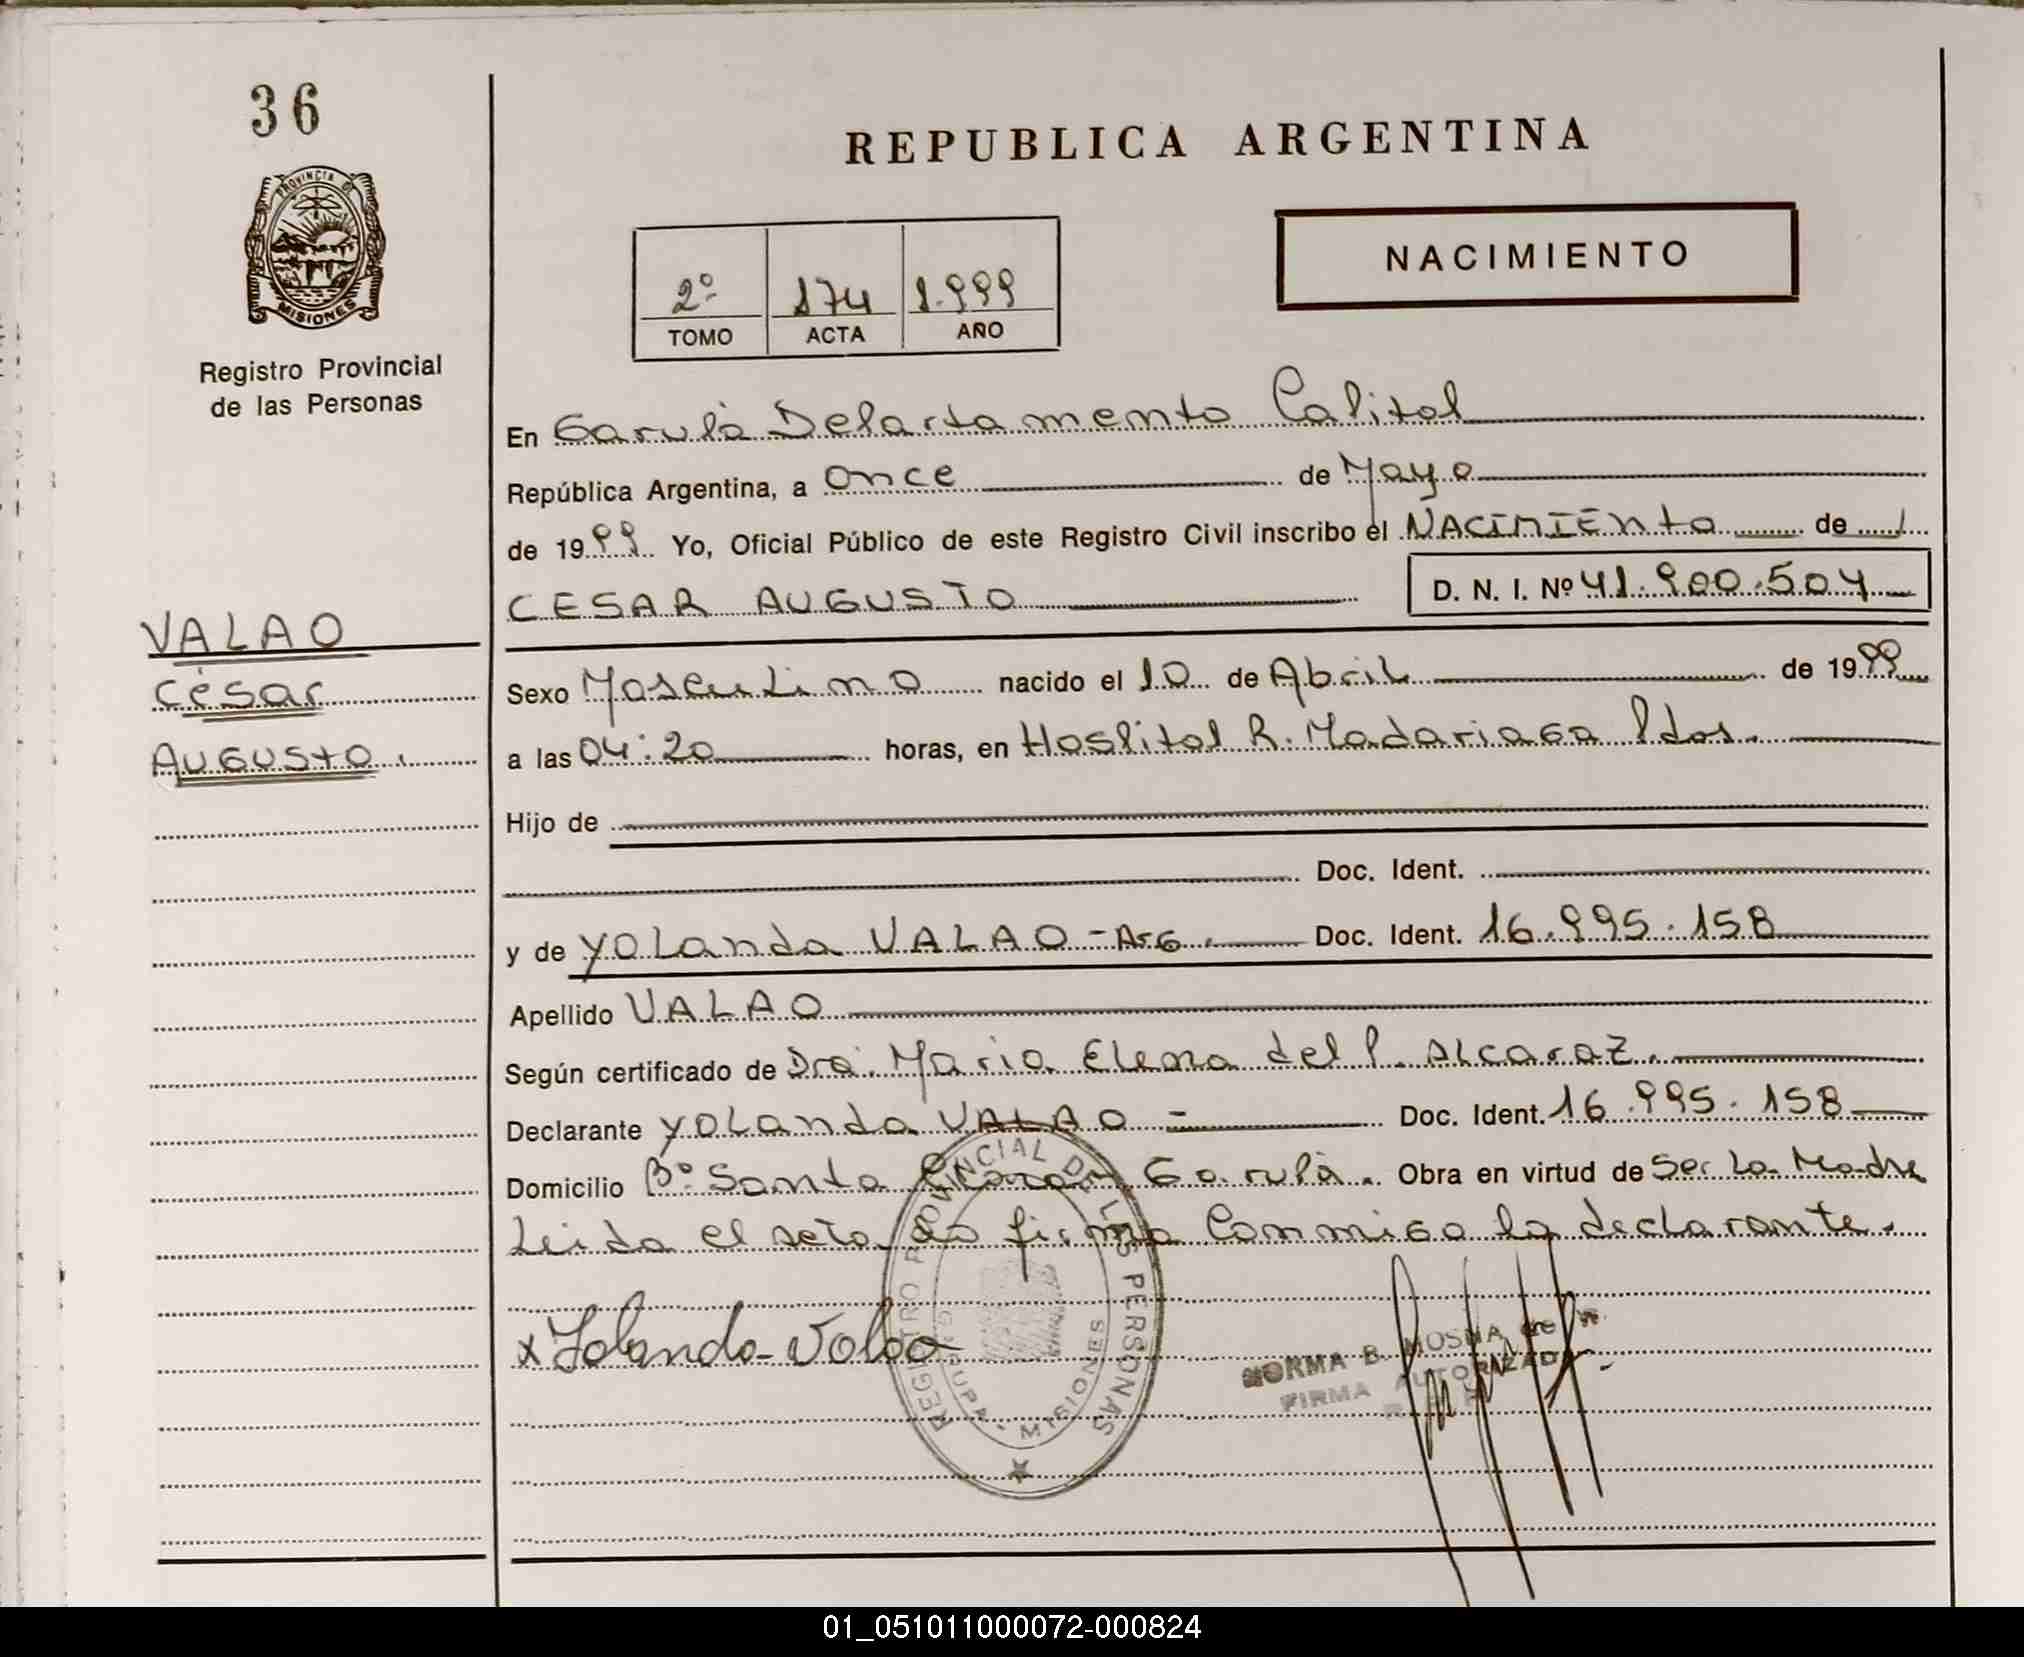 36
REPUBLICA ARGENTINA
PROVINCIA DE
MISIONES
NACIMIENTO
2º 174 1.999
TOMO ACTA AÑO
Registro Provincial
de las Personas
En Garupá Departamento Capital
República Argentina, a once de Mayo
de 1999 Yo, Oficial Público de este Registro Civil inscribo el NACIMIENTO de
CESAR AUGUSTO D. N. I. Nº 41.900.504
VALAO
César
AUGUSTO.
Sexo Masculino nacido el 10 de Abril de 1999
a las 04:20 horas, en Hospital R. Madariaga Pdas.
Hijo de
Doc. Ident.
y de Yolanda VALAO - Arg. Doc. Ident. 16.995.158
Apellido VALAO
Según certificado de Dra. Maria Elena del P. Alcaraz.
Declarante Yolanda VALAO - Doc. Ident. 16.995.158
Domicilio Bº Santa Garupá. Obra en virtud de Ser La Madre
Leida el acta La firma Conmigo la declarante.
x Yolanda Valao
REGISTRO PROVINCIAL DE LAS PERSONAS
GARUPA - MISIONES
NORMA B. de
FIRMA AUTORIZADA
01_051011000072-000824